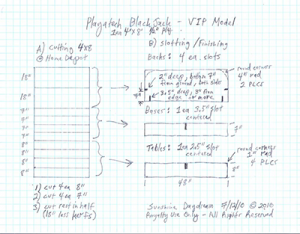 Plagatech Black Jack - VIP Model
1ea 4x8' 1/2" Ply
A) cutting 4x8
@ Home Depot
B) slotting/Finishing
Backs: 4 ea. slots
round corners
4" rad
2 PLCS
18"
18"
7"
7"
7"
7"
8"
8"
8"
8"
2" deep, bottom 7"
from ground, both sides
3.5" deep, 3" from
Bases: 1ea 3.5" slot
centered
7"
Tables: 1ea 2.5" slot
centered
round corners
1" rad
4 PLCS
8"
48"
1) cut 4 ea 8"
2) cut 4 ea 7"
3) cut rest in half
(18" less kerfs)
Sunshine Daydream 7/17/10 © 2010
Royalty Use Only - All Rights Reserved